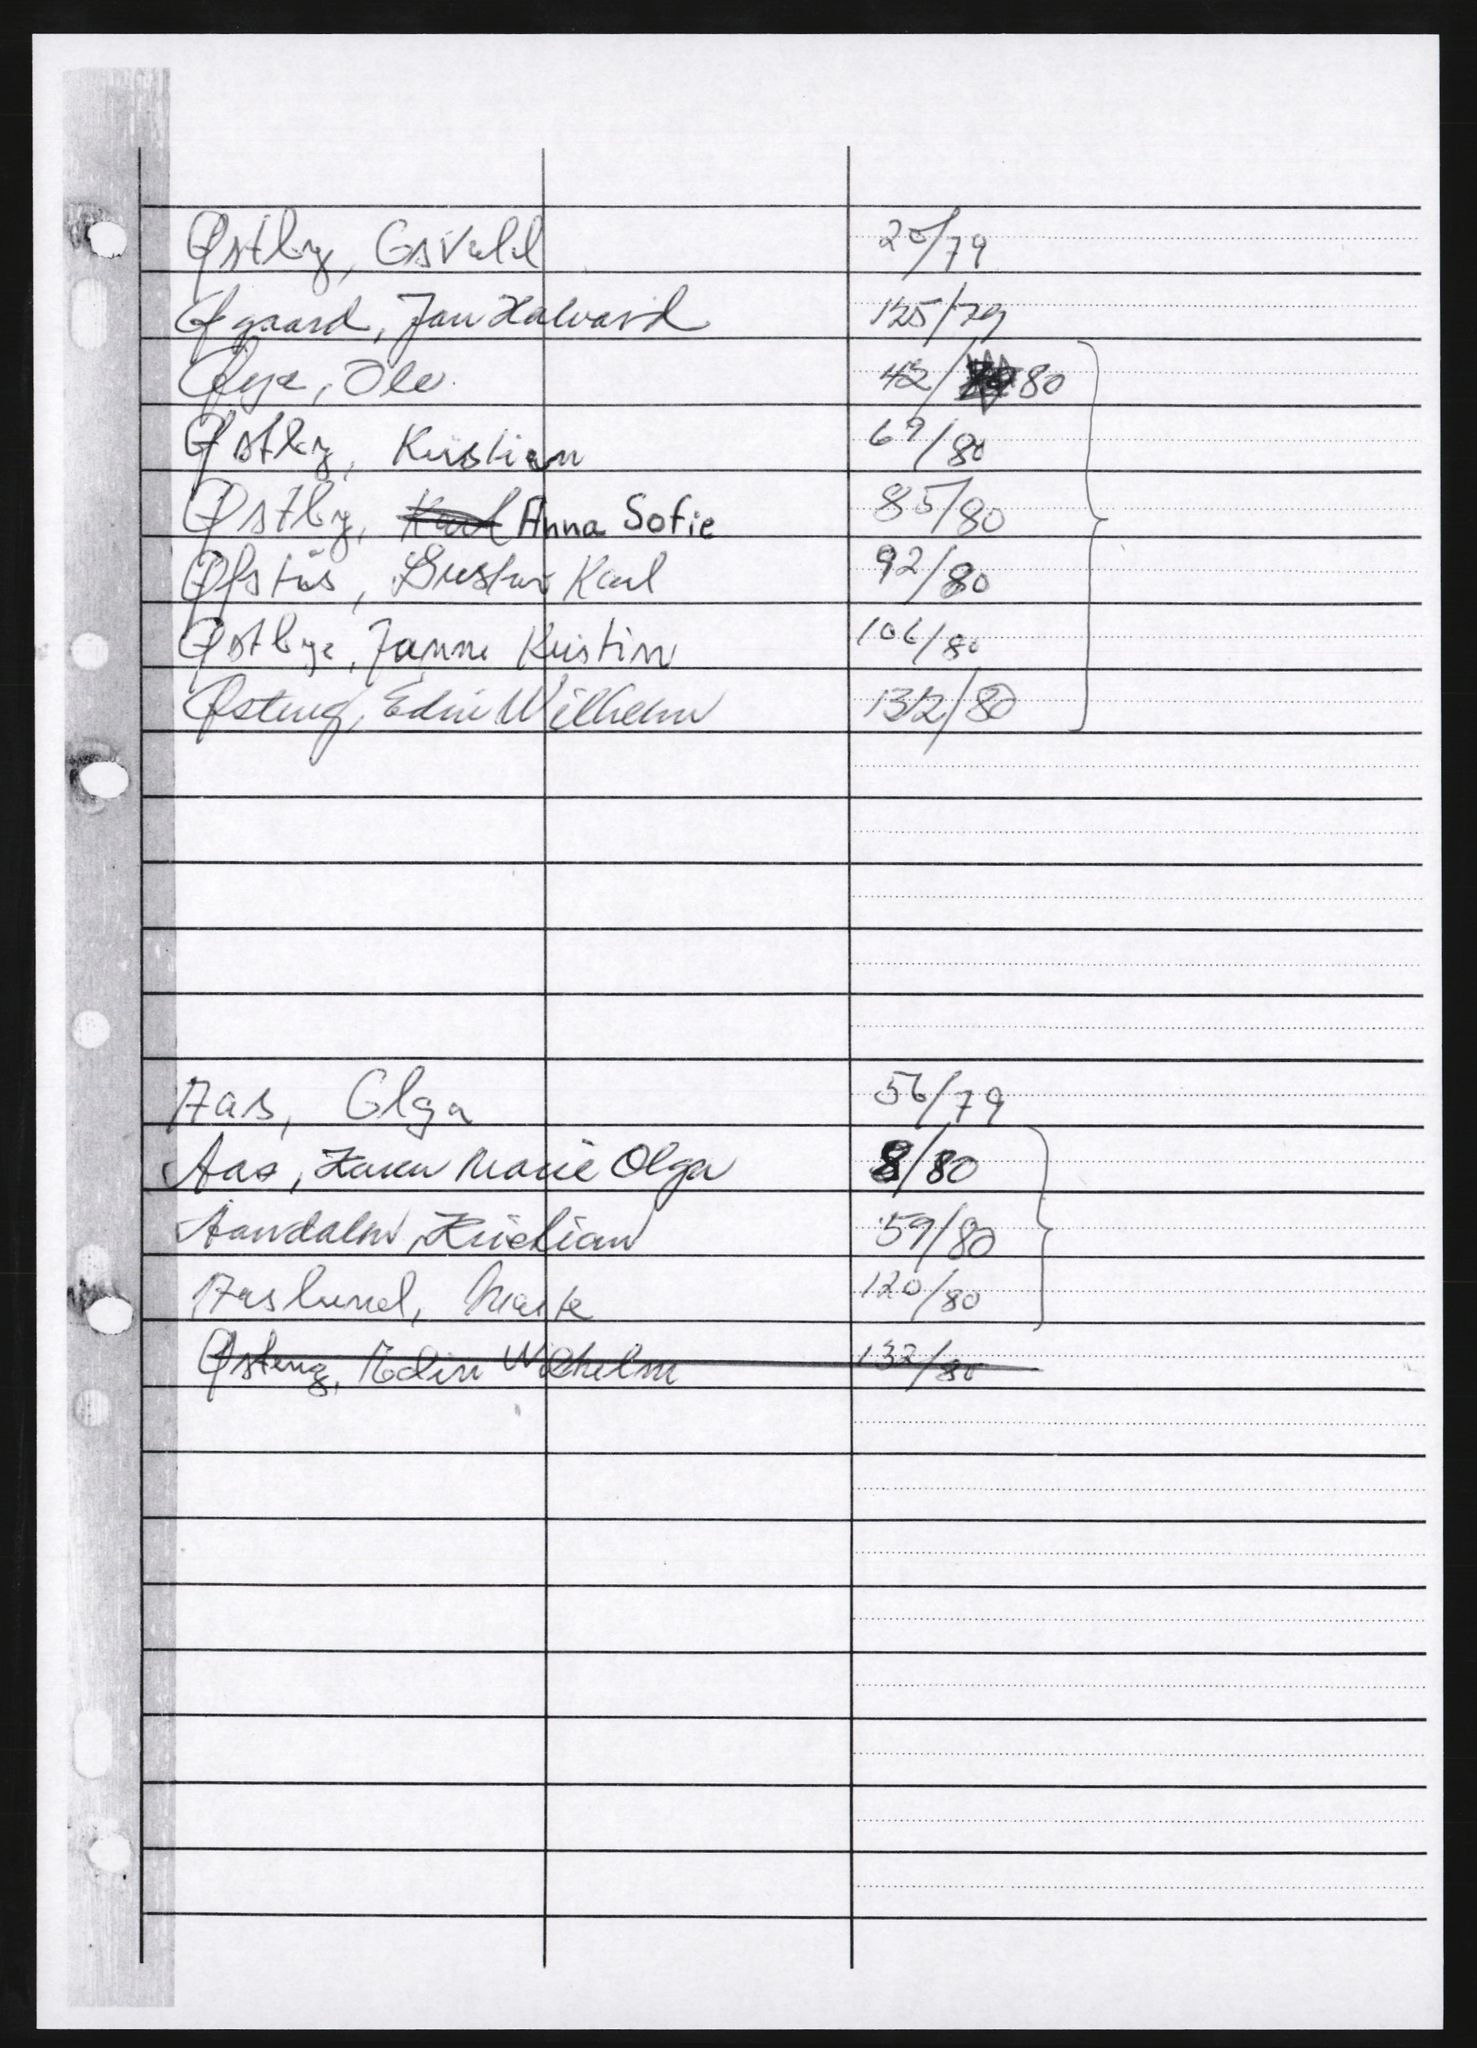 Østby, Osvald 20/79
Øgaard, Jan Halvard 125/79
Øye, Ole 42/80
Østby, Kristian 69/80
Østby, Anna Sofie 85/80
Øfstås, Gustav Karl 92/80
Østbye, Janne Kristin 106/80
Østeng, Edin Wilhelm 132/80
Aas, Olga 56/79
Aas, Karen Marie Olga 8/80
Aandalen, Kristian 59/80
Aaslund, Marte 120/80
Østeng, Edin Wilhelm 132/80